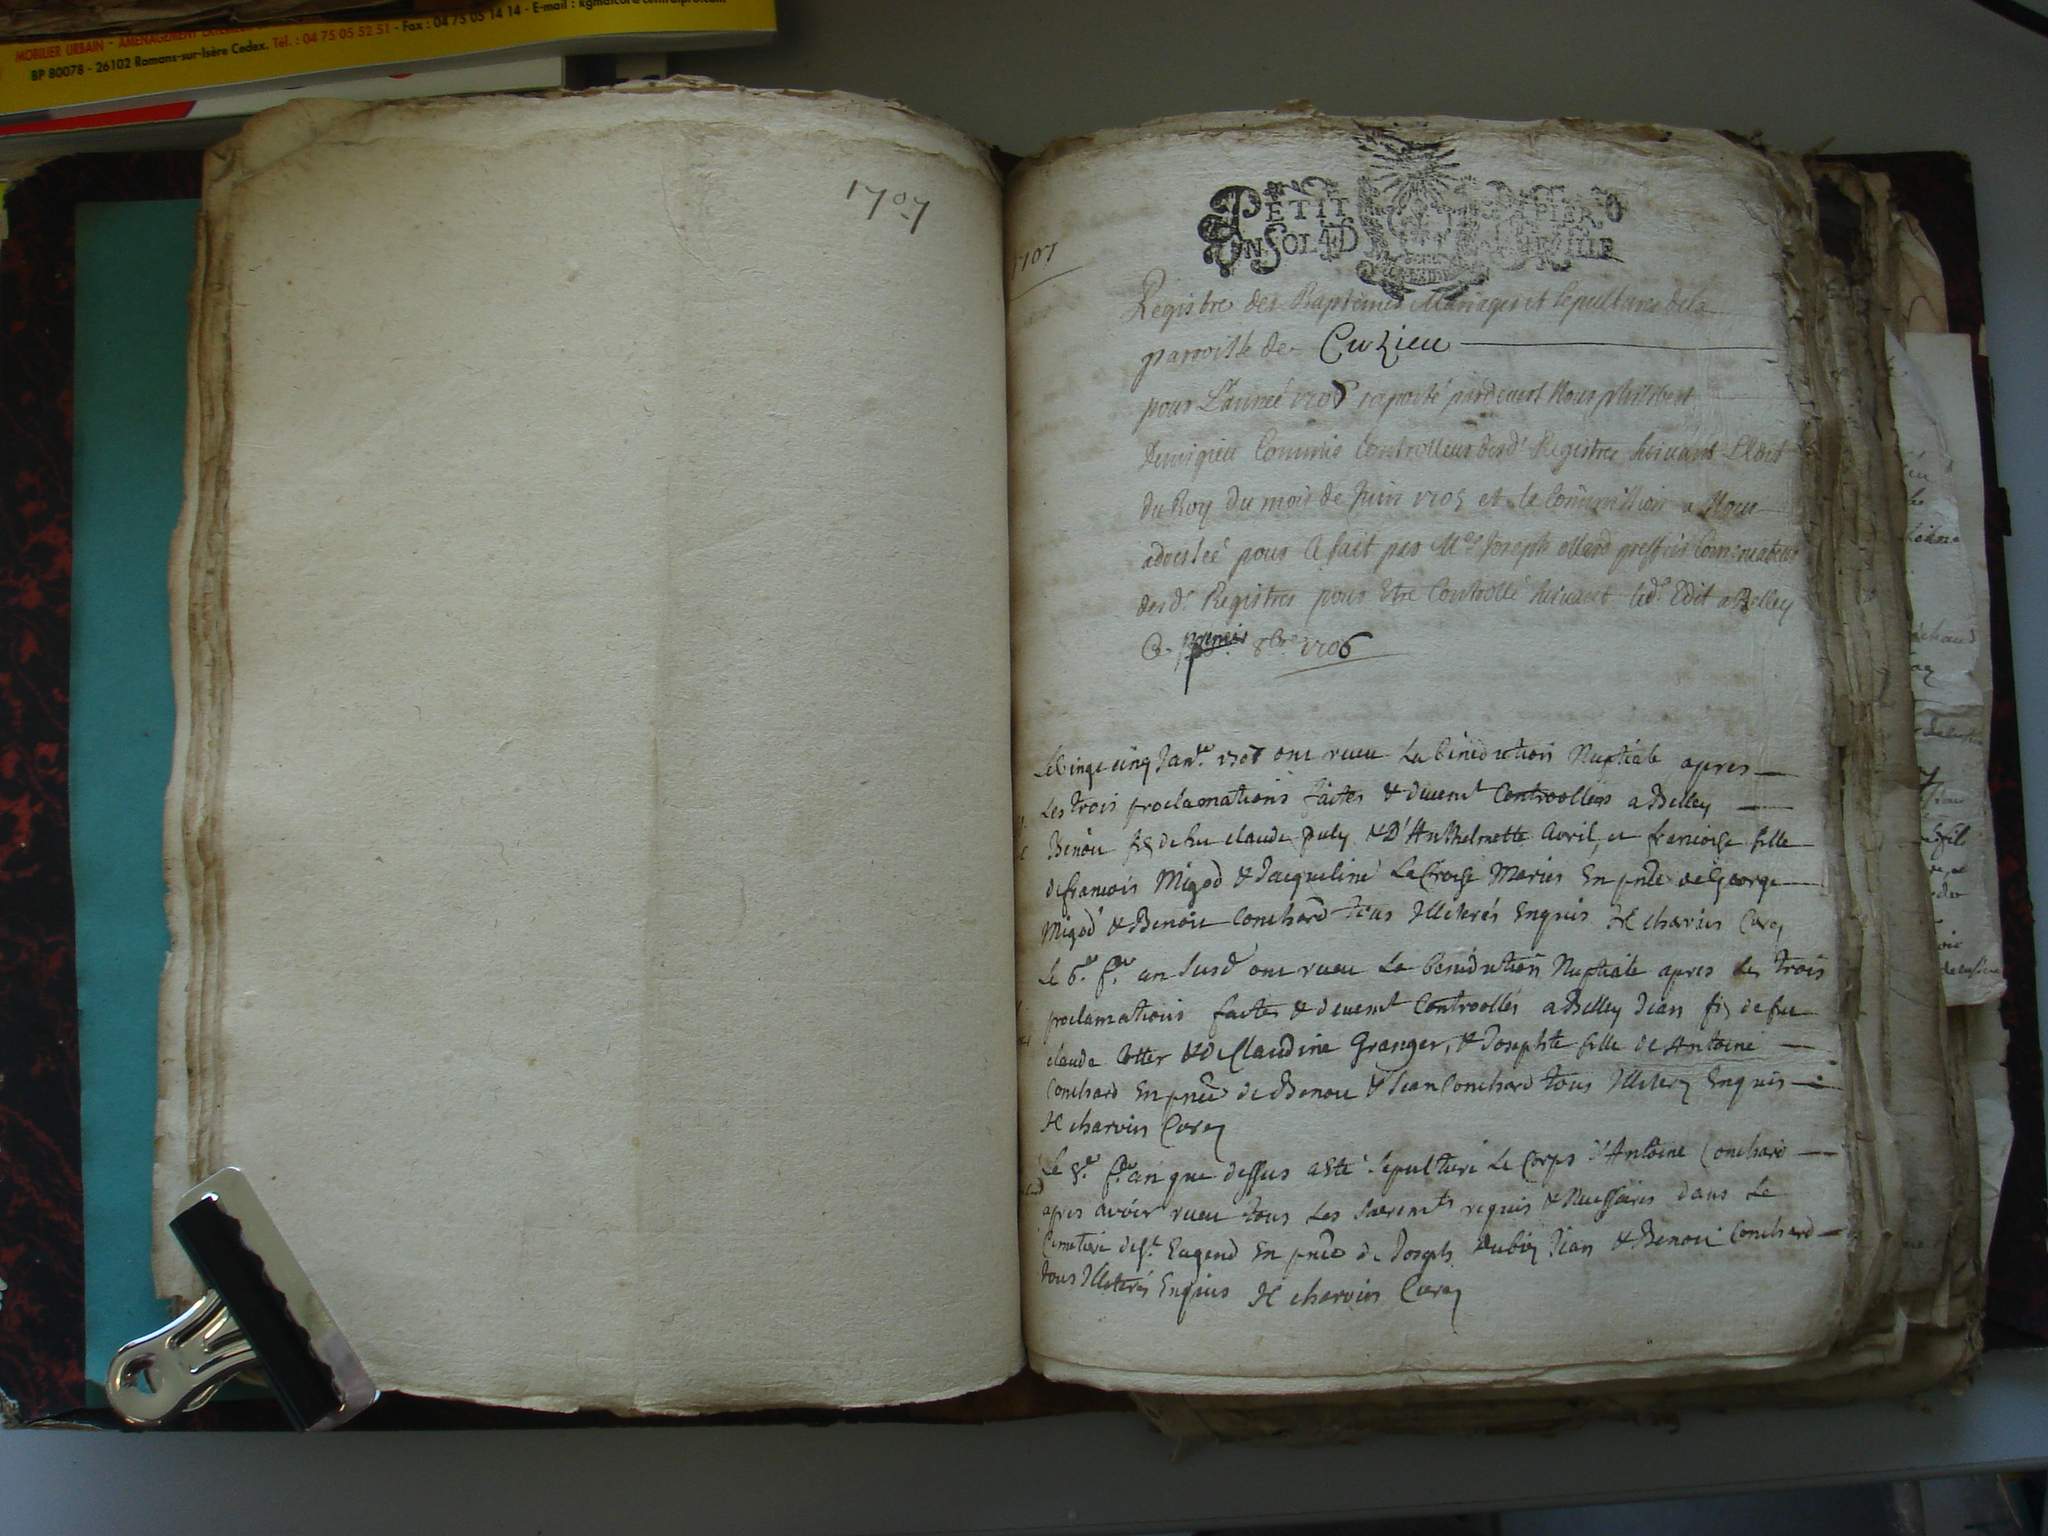 MOBILIER URBAIN - AMÉNAGEMENT
BP 80078 - 26102 Romans-sur-Isère Cedex. Tél. : 04 75 05 52 51 - Fax : 04 75 05 14 14 - E-mail :
1707
1707
PETIT PAPIER
UN SOL 4 D LA FEUILLE
Registre des Baptêmes Mariages et sepultures de la
parroisse de Cuzieu
pour L'année 1706 raporté pardevant Nous philibert
Commis Controlleur desd. Registres suivant L'Edit
du Roy du mois de Juin 1705 et la Commission a Nous
adressée pour Ce fait par Me Joseph greffier Conservateur
desd. Registres pour Etre Controllé suivant led. Edit a Belley
Ce premier 8bre 1706
Le vingt cinq Janr. 1707 ont receu La benediction Nuptiale apres
Les trois proclamations faites & duemt Controollees a Belley
Benoit fils de feu claude puly & D'Anthelmette Avril, et francoise fille
de francois Migod & Jacqueline La Croise Mariés En pnce de George
Migod & Benoit Conchard tous Illiterés Enquis H charvin Curé
Le 6e f.er an susd ont receu La benediction Nuptiale apres les trois
proclamations faites & duemt Controollés a Belley Jean fils de feu
claude Cotter & de Claudine Granger, & Josephte fille de Antoine
Conchard En pnce de Benoit & Jean Conchard tous Illiterés Enquis
H charvin Curé
Le 8e f.er an que dessus a Eté sepulturé Le Corps d'Antoine Conchard
apres avoir receu tous Les sacremts requis & Necessaires dans Le
Cemetiere de St. Eugend En pnce de Joseph Jean & Benoit Conchard
tous Illiterés Enquis H charvin Curé